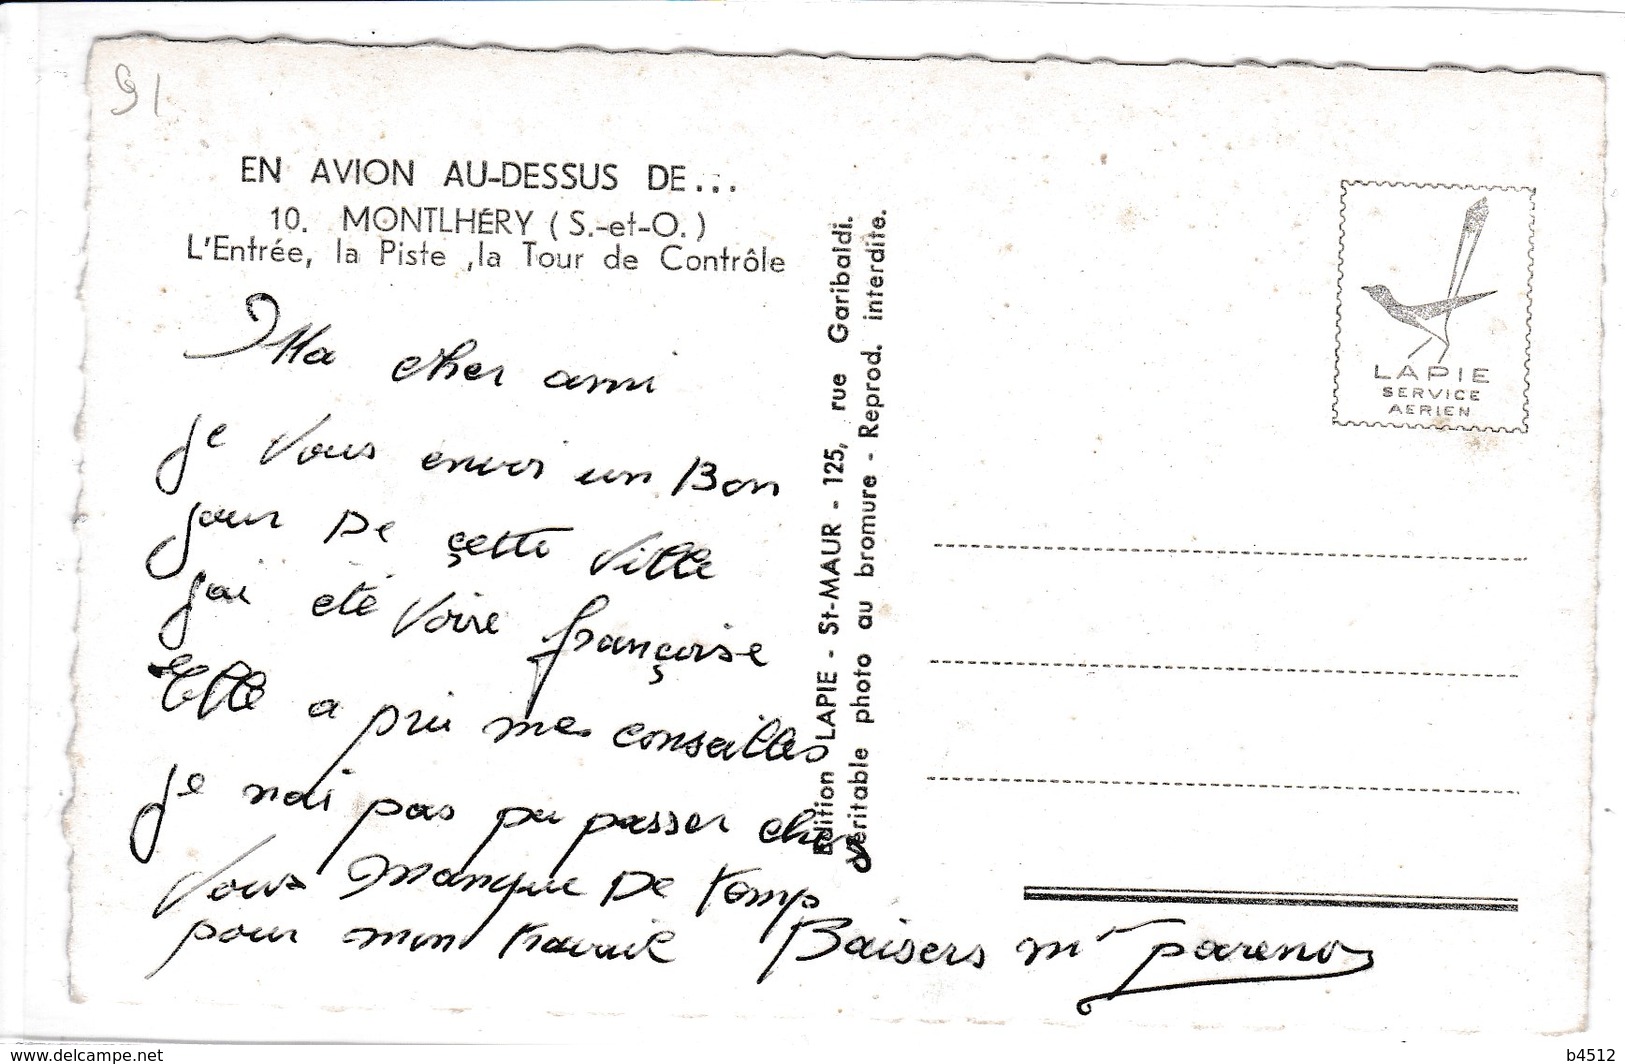 91
EN AVION AU-DESSUS DE...
10. MONTLHÉRY (S.-et-O.)
L'Entrée, la Piste ,la Tour de Contrôle
Ma cher ami
je vous envoi un Bon
jour De çette ville
jai été voire françoise
Elle a pri mes conseilles
je nai pas pu passer chez
vous manque De temp
pour mon travail Baisers mr pareno
Edition LAPIE - St-MAUR - 125, rue Garibaldi.
Véritable photo au bromure - Reprod. interdite.
LAPIE
SERVICE
AERIEN
www.delcampe.net
b4512